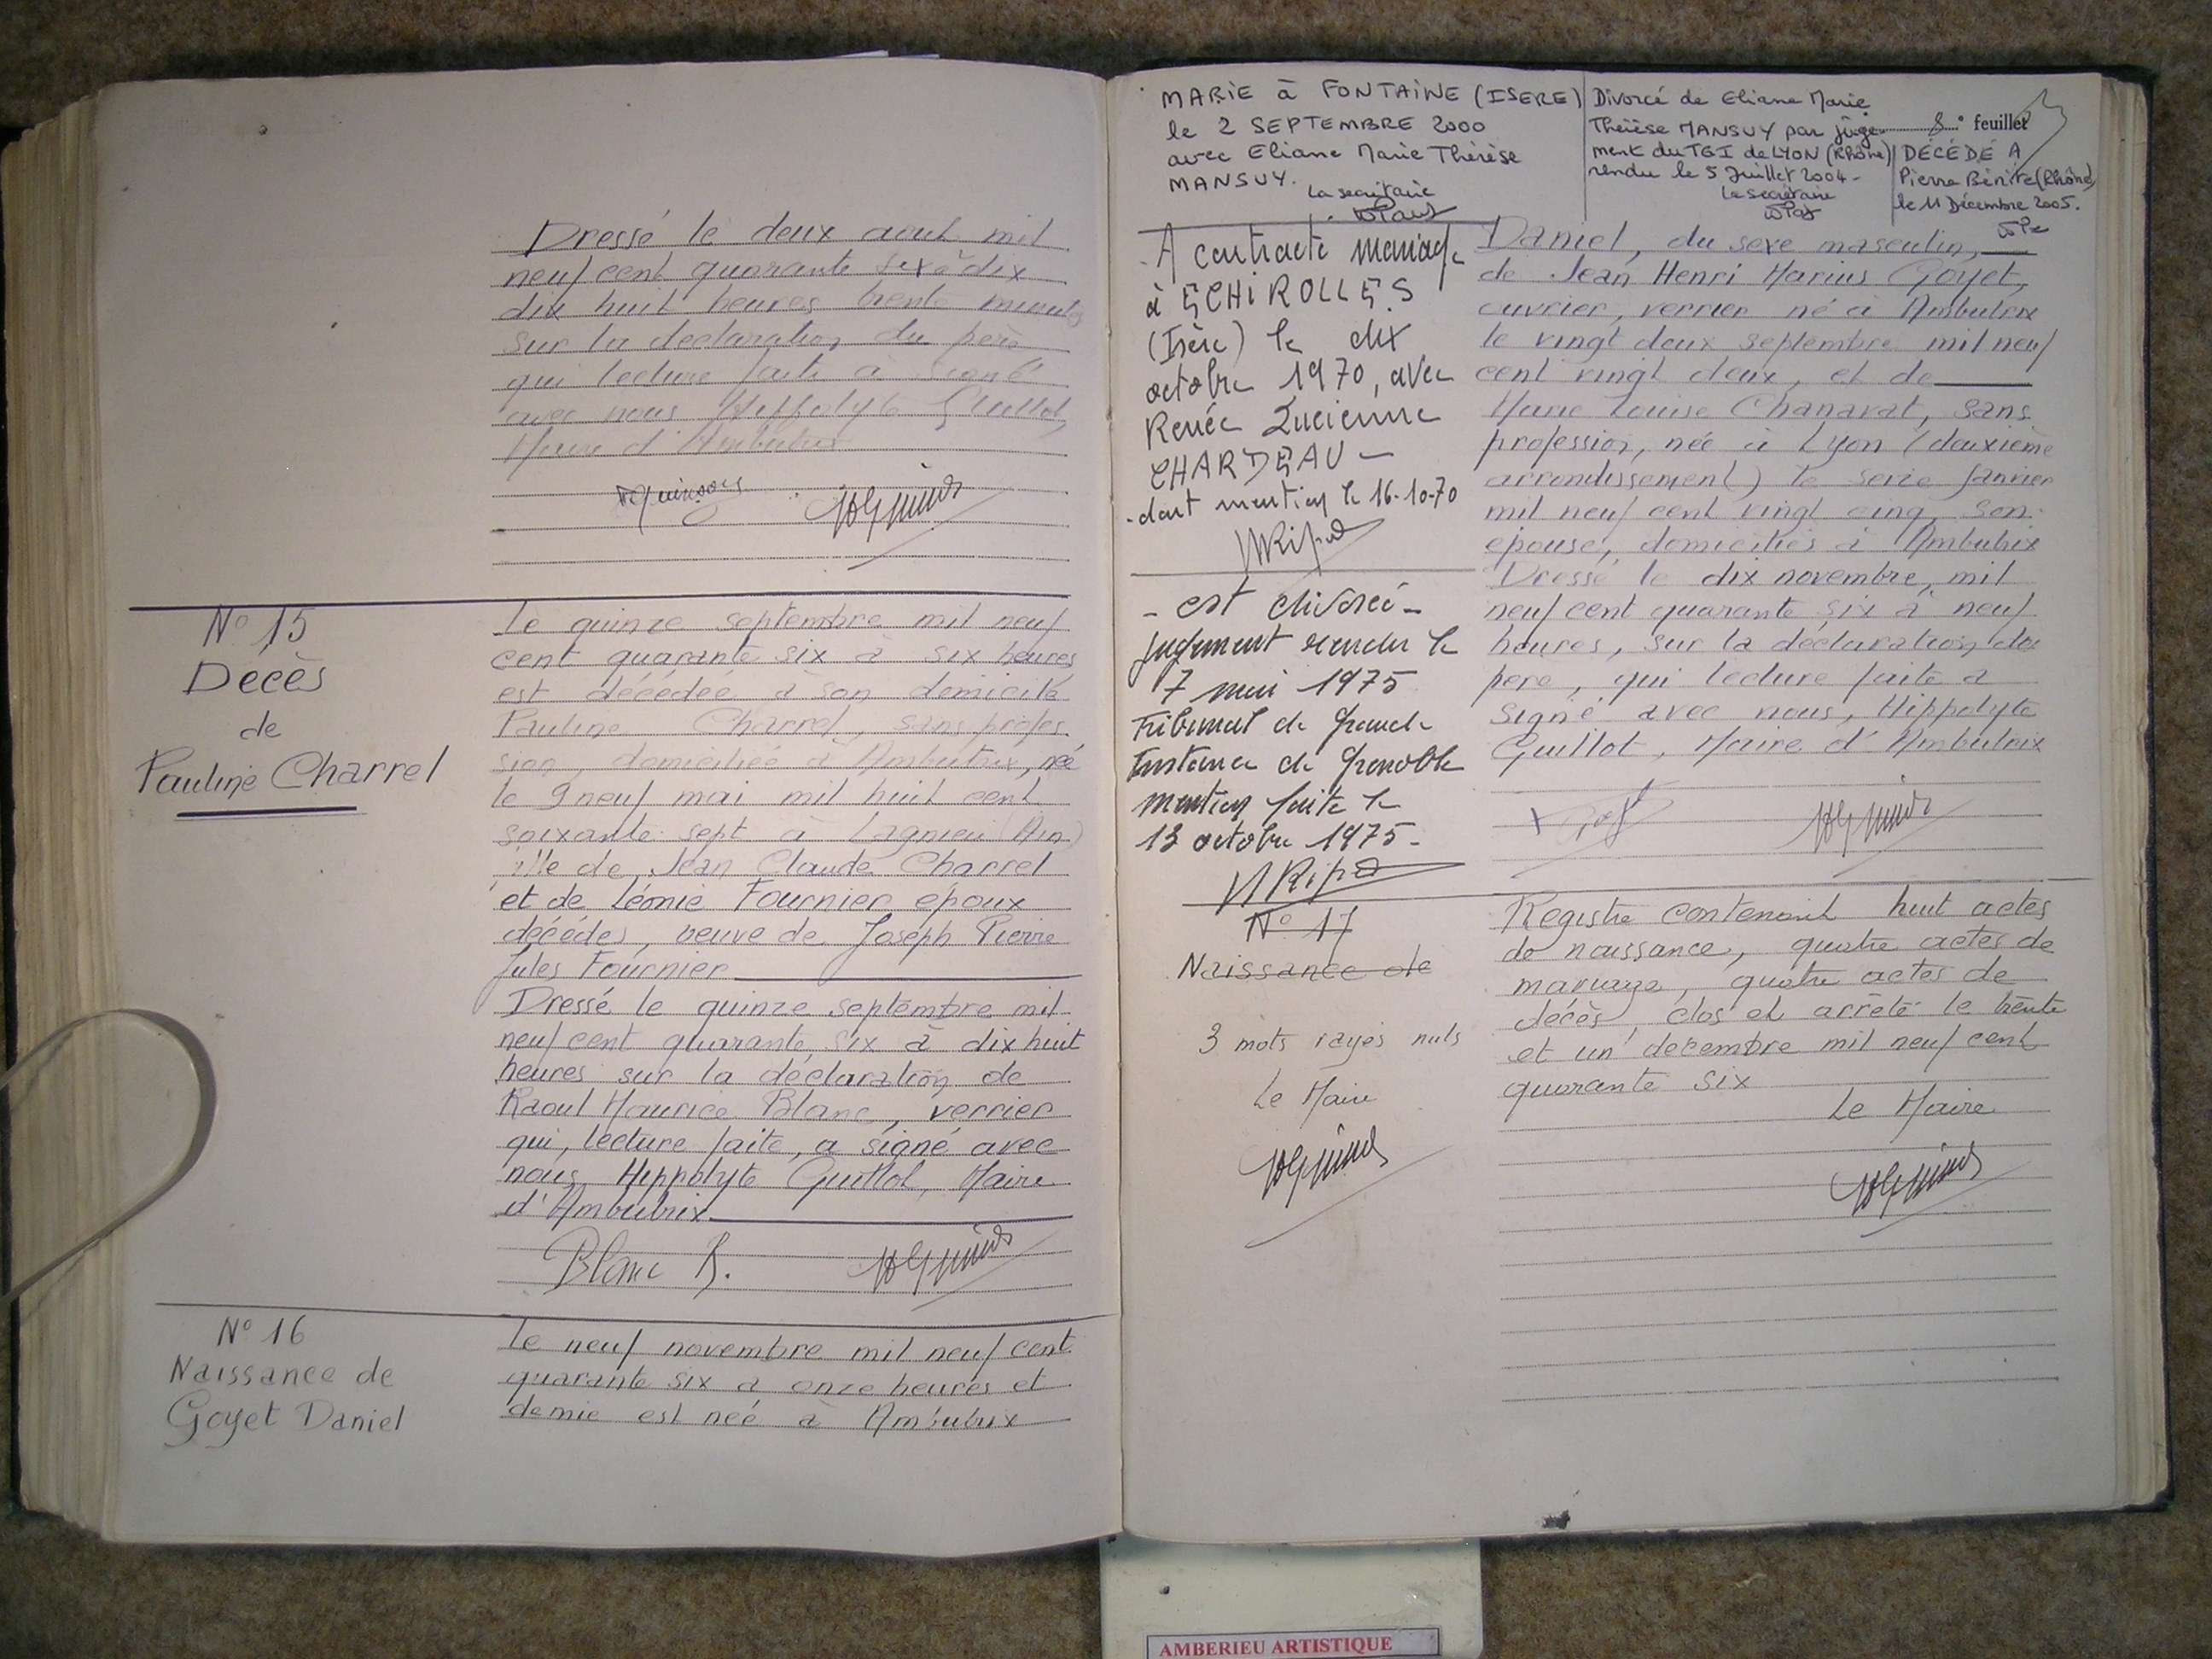 Dressé le deux aout mil
neuf cent quarante six à dix
dix huit heures trente minutes
sur la declaration du père
qui lecture faite à signé
avec nous Hippolyte Guillot,
Maire d'Ambutrix
N° 15
Décès
de
Pauline Charrel
Le quinze septembre mil neuf
cent quarante six à six heures
est décédée à son domicile
Pauline Charrel, sans profes
sion, domiciliée à Ambutrix, née
le 9 neuf mai mil huit cent
soixante sept à Lagnieu (Ain)
fille de Jean Claude Charrel
et de Léonie Fournier époux
décédés, veuve de Joseph Pierre
Jules Fournier
Dressé le quinze septembre mil
neuf cent quarante six à dix huit
heures sur la déclaration de
Raoul Maurice Blanc, verrier
qui, lecture faite, a signé avec
nous Hippolyte Guillot, Maire
d'Ambutrix
Blanc R.
N° 16
Naissance de
Goyet Daniel
Le neuf novembre mil neuf cent
quarante six à onze heures et
demie est née à Ambutrix
MARIE à FONTAINE (ISERE)
le 2 SEPTEMBRE 2000
avec Eliane Marie Thérèse
MANSUY.
La secrétaire
Divorcé de Eliane Marie
Thérèse MANSUY par juge-
ment du TGI de LYON (Rhône)
rendu le 5 Juillet 2004 -
La secrétaire
8e feuillet
DÉCÉDÉ À
Pierre Bénite (Rhône)
le 11 Décembre 2005.
A contracté mariage
à ECHIROLLES
(Isère) le dix
octobre 1970, avec
Renée Lucienne
CHARDEAU -
dont mention le 16-10-70
- est divorcé -
jugement rendu le
7 mai 1975
Tribunal de Grande
Instance de Grenoble
mention faite le
13 octobre 1975 -
N° 17
Naissance de
3 mots rayés nuls
Le Maire
Daniel, du sexe masculin,
de Jean Henri Marius Goyet,
ouvrier, verrier né à Ambutrix
le vingt deux septembre mil neuf
cent vingt deux, et de
Marie Louise Chanavat, sans
profession, née à Lyon (deuxième
arrondissement) le seize Janvier
mil neuf cent vingt cinq, son
épouse, domiciliés à Ambutrix
Dressé le dix novembre, mil
neuf cent quarante six à neuf
heures, sur la déclaration du
père, qui lecture faite a
signé avec nous, Hippolyte
Guillot, Maire d'Ambutrix
Registre contenant huit actes
de naissance, quatre actes de
mariage, quatre actes de
décès, clos et arrêté le trente
et un décembre mil neuf cent
quarante six
Le Maire
AMBERIEU ARTISTIQUE